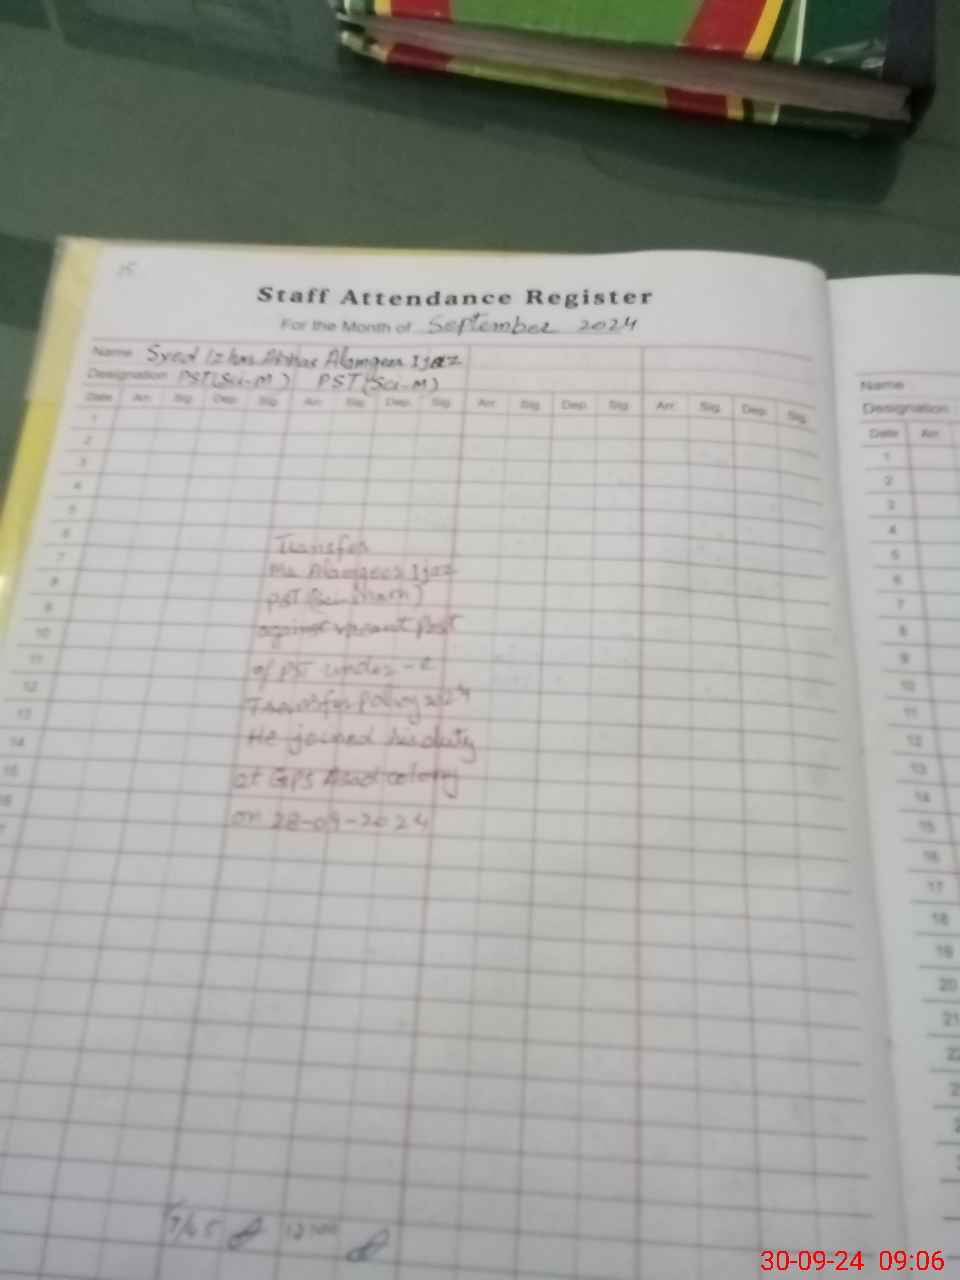 15
Staff Attendance Register
For the Month of September 2024
Name Syed Izhar Abbas Alamgeer Ijaz
Designation PST(Sci-M) PST(Sci-M)
Date Arr. Sig. Dep. Sig. Arr. Sig. Dep. Sig. Arr. Sig. Dep. Sig. Arr. Sig. Dep. Sig.
1
2
3
4
5
6
7
8
9
10
11
12
13
14
15
16
Transfer
Mr Alamgeer Ijaz
PST (Sci-Math)
against vacant Post
of PST under - e
Transfer Policy 2024
He joined his duty
at GPS Asad colony
on 28-09-2024
Name
Designation
Date Arr.
1
2
3
4
5
6
7
8
9
10
11
12
13
14
15
16
17
18
19
20
21
22
30-09-24 09:06